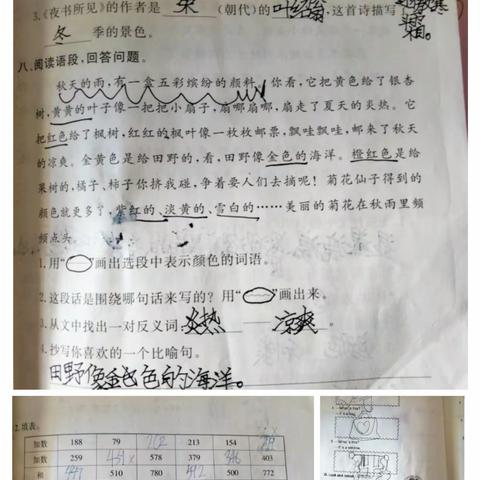 3.《夜书所见》的作者是 宋 （朝代）的 叶绍翁，这首诗描写
冬 季的景色。
八、阅读语段，回答问题。
秋天的雨，有一盒五彩缤纷的颜料，你看，它把黄色给了银杏
树，黄黄的叶子像一把把小扇子，扇哪扇哪，扇走了夏天的炎热。它
把红色给了枫树，红红的枫叶像一枚枚邮票，飘哇飘哇，邮来了秋天
的凉爽。金黄色是给田野的，看，田野像金色的海洋。橙红色是给
果树的，橘子、柿子你挤我碰，争着要人们去摘呢！菊花仙子得到的
颜色就更多了，紫红的、淡黄的、雪白的……美丽的菊花在秋雨里频
频点头。
1.用“ ”画出选段中表示颜色的词语。
2.这段话是围绕哪句话来写的？用“ ”画出来。
3.从文中找出一对反义词 炎热 —— 凉爽。
4.抄写你喜欢的一个比喻句。
田野像金色的海洋。
2.填表。
加数 188 79 213 154
加数 259 431 578 379 346 403
和 447 510 780 500 772